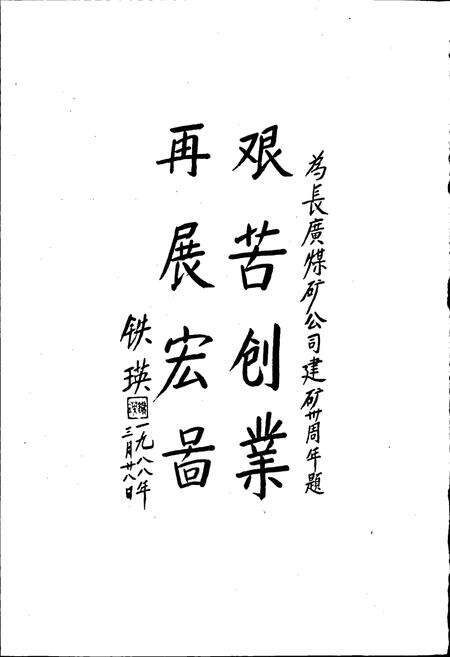 為長廣煤矿公司建矿卅周年題
艰苦创業
再展宏啚
铁瑛
一九八八年
三月廿八日